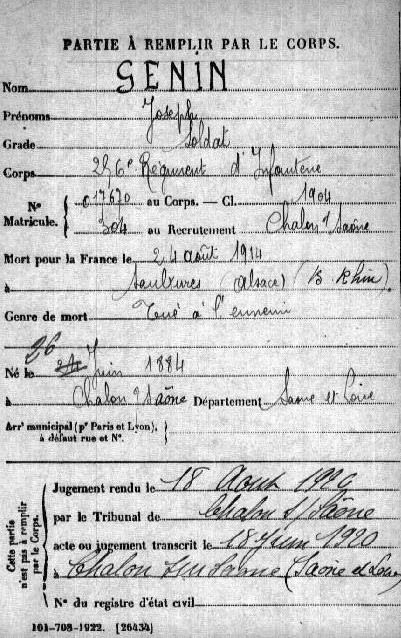 PARTIE À REMPLIR PAR LE CORPS.
Nom GENIN
Prénoms Joseph
Grade Soldat
Corps 256e Régiment d'Infanterie
N° Matricule. { 017670 au Corps. — Cl. 1904
304 au Recrutement Chalon s/ Saône
Mort pour la France le 24 août 1914
à Saulxures (Alsace) (B. Rhin)
Genre de mort Tué à l'ennemi
Né le 26 Juin 1884
à Chalon s/ Saône Département Saône et Loire
Arrt municipal (pr Paris et Lyon), à défaut rue et N°. {
Cette partie n'est pas à remplir par le Corps.
Jugement rendu le 18 Aout 1920
par le Tribunal de Chalon s/ Saône
acte ou jugement transcrit le 18 Juin 1920
à Chalon sur Saone (Saone et Loire)
N° du registre d'état civil
101-708-1922. [26434]